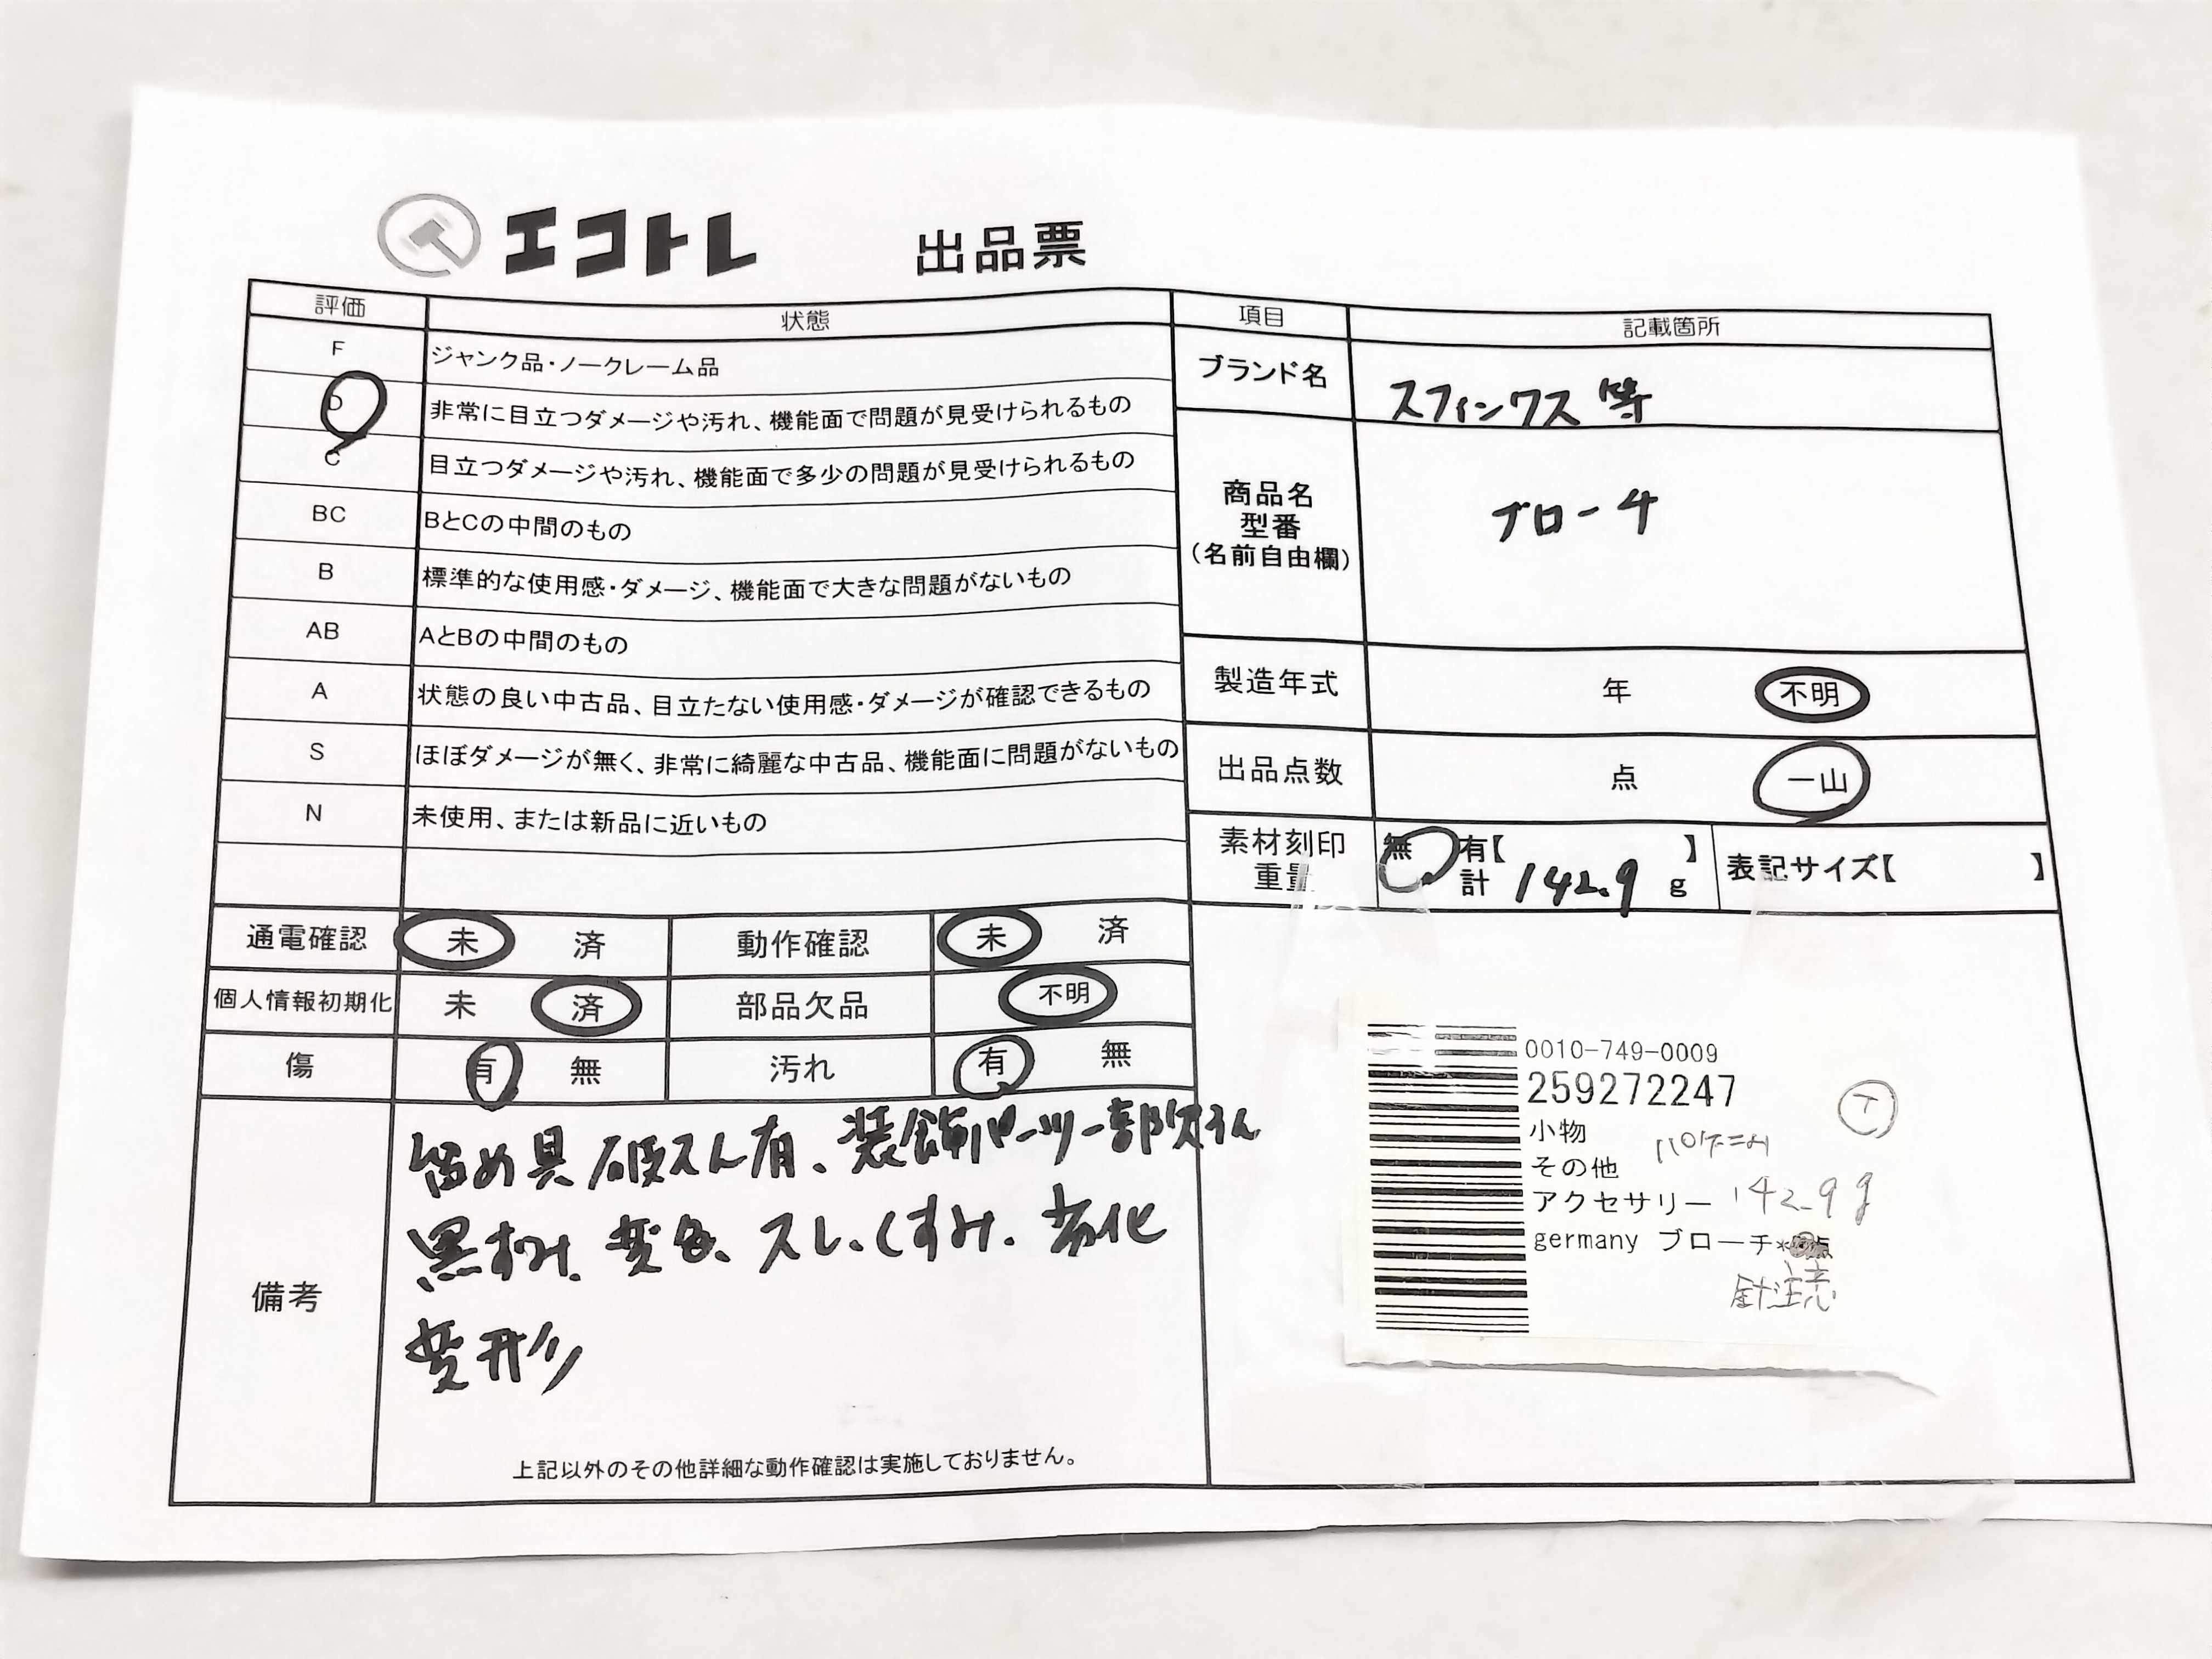 エコトレ 出品票
評価 状態
F ジャンク品・ノークレーム品
D 非常に目立つダメージや汚れ、機能面で問題が見受けられるもの
C 目立つダメージや汚れ、機能面で多少の問題が見受けられるもの
BC BとCの中間のもの
B 標準的な使用感・ダメージ、機能面で大きな問題がないもの
AB AとBの中間のもの
A 状態の良い中古品、目立たない使用感・ダメージが確認できるもの
S ほぼダメージが無く、非常に綺麗な中古品、機能面に問題がないもの
N 未使用、または新品に近いもの
通電確認 未 済 動作確認 未 済
個人情報初期化 未 済 部品欠品 不明
傷 有 無 汚れ 有 無
備考
留め具破スん有、装飾パーツ一部欠そん
黒ずみ、変色、スレ、くすみ、劣化
変形
上記以外のその他詳細な動作確認は実施しておりません。
項目 記載箇所
ブランド名 スフィンクス 等
商品名
型番
(名前自由欄)
ブローチ
製造年式 年 不明
出品点数 点 一山
素材刻印 無 有【 】
重量 計 142.9 g
表記サイズ【 】
0010-749-0009
259272247
小物
その他
アクセサリー 142.9g
germany ブローチ*
針注意